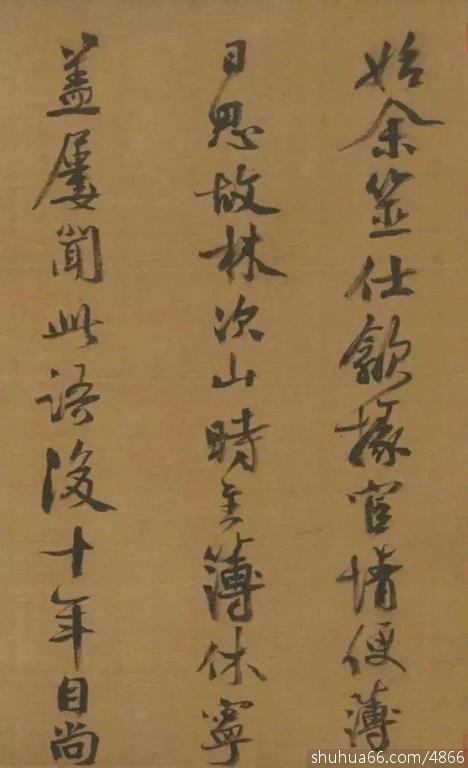 始余筮仕歙掾宦情便薄
日思故林次山時主簿休寧
盖屢聞此語後十年自尚
shuhua66.com/4866